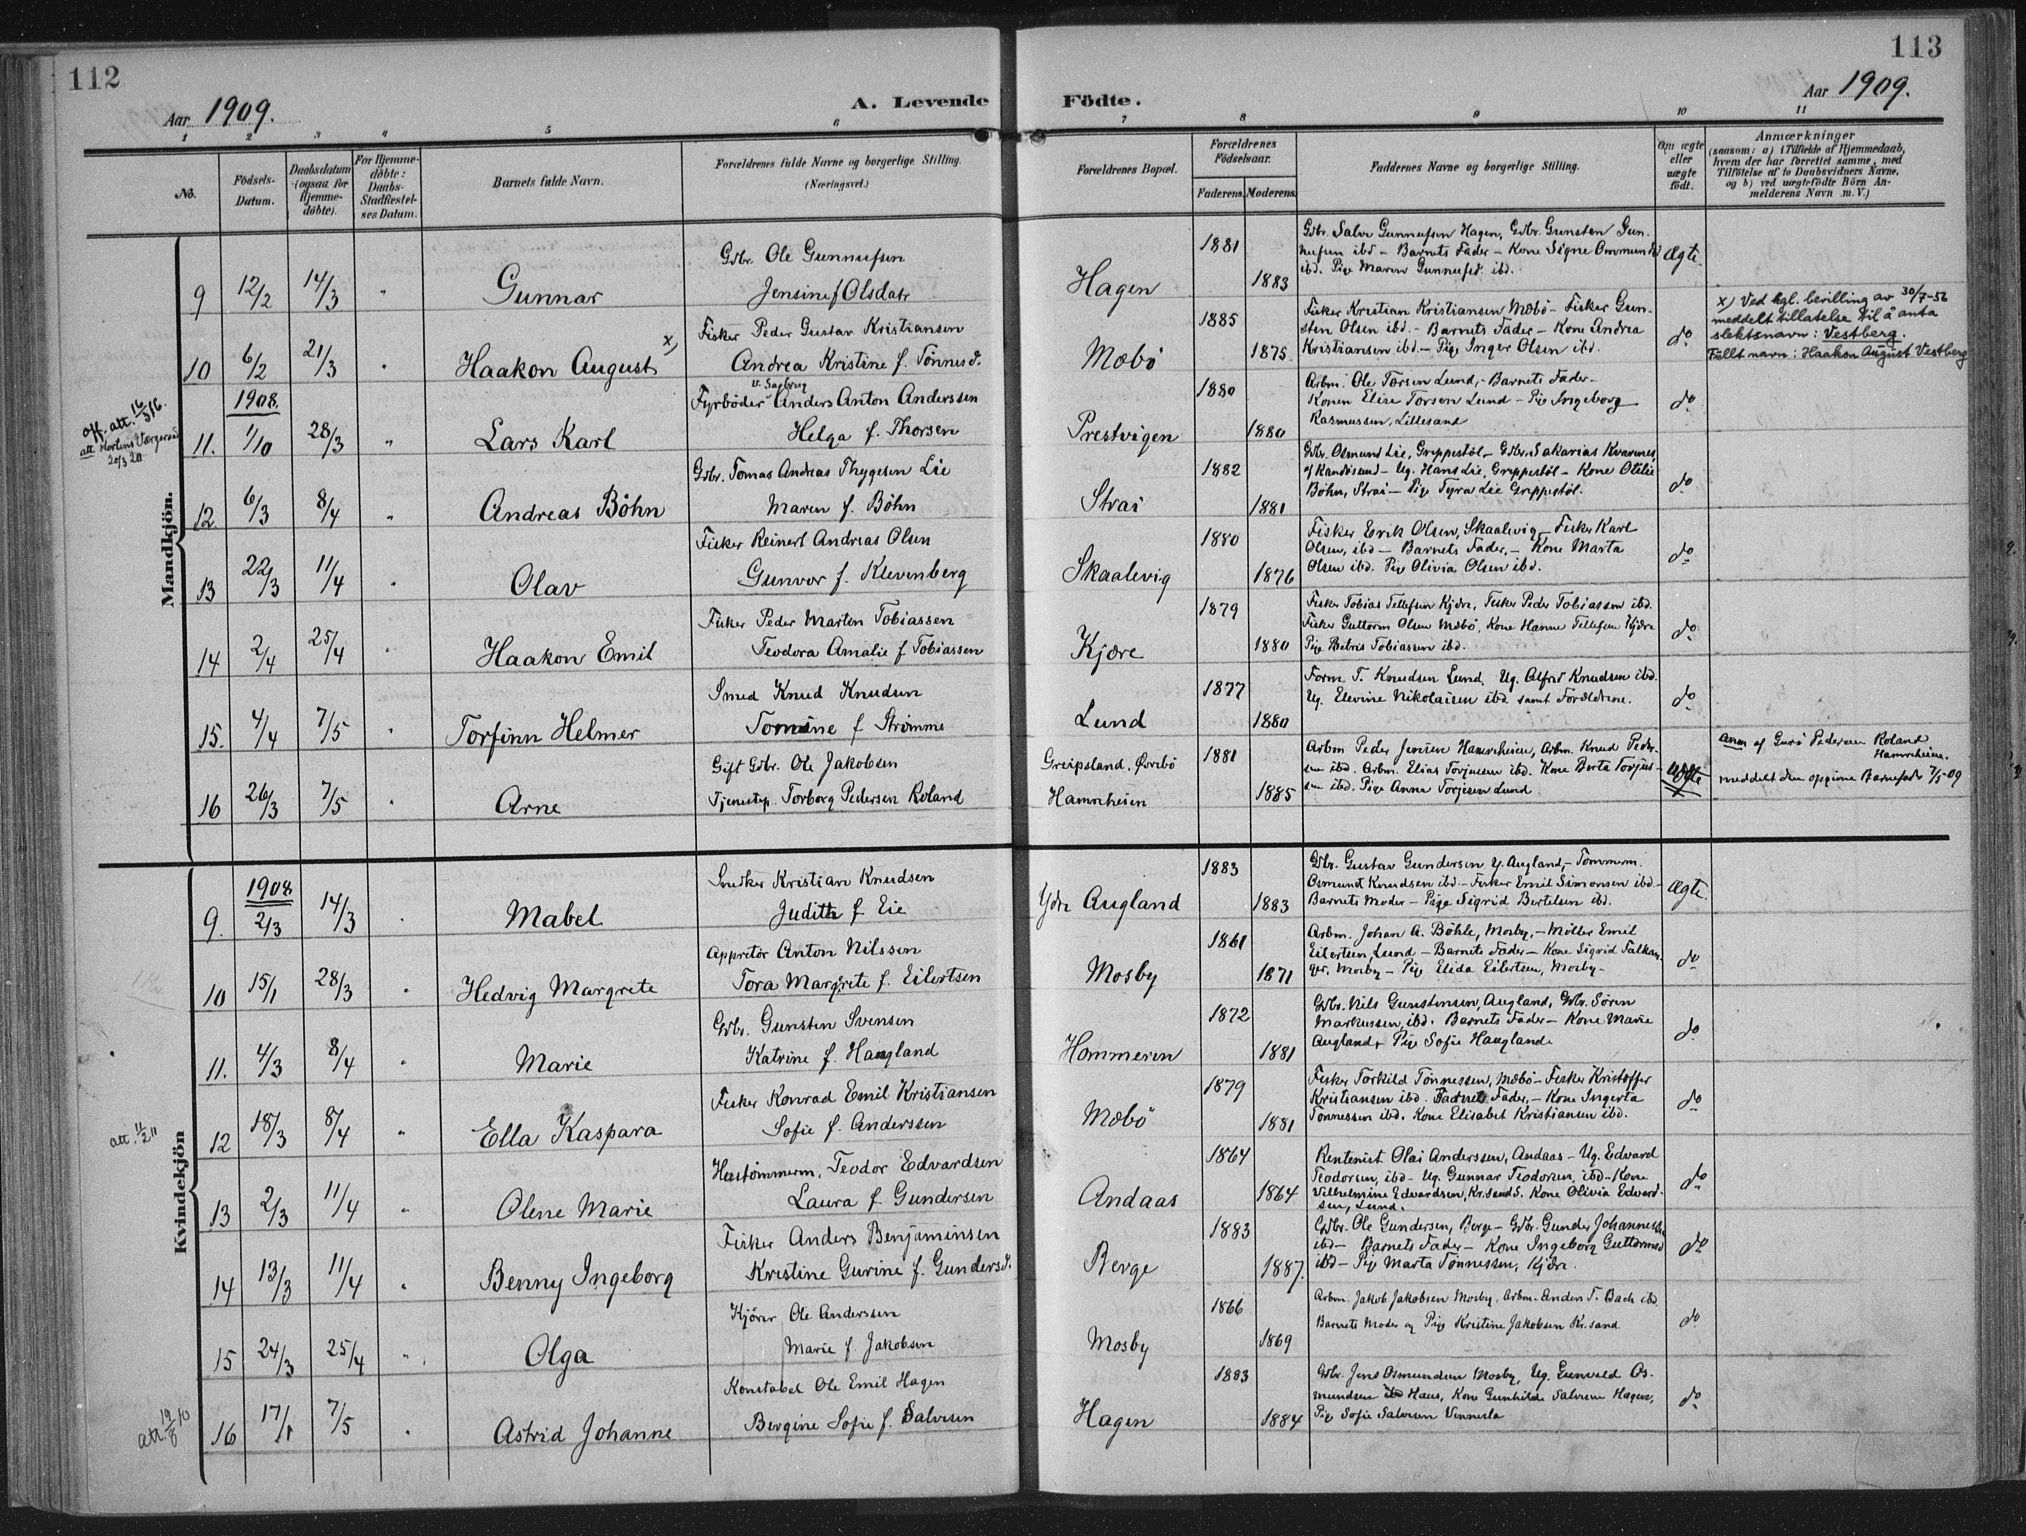 112
113
Aar 1909.
A. Levende
Födte.
Aar 1909.
1 2 3 4 5 6 7 8 9 10 11
No.
Födsels-
Datum.
Daabsdatum
(ogsaa for
Hjemme-
döbte).
For Hjemme-
döbte:
Daabs-
Stadfæstel-
ses Datum.
Barnets fulde Navn.
Forældrenes fulde Navne og borgerlige Stilling.
(Næringsvei.)
Forældrenes Bopæl.
Forældrenes
Födselsaar.
Faderens. Moderens.
Faddernes Navne og borgerlige Stilling.
Om ægte
eller
uægte
födt.
Anmærkninger
(saasom: a) i Tilfælde af Hjemmedaab,
hvem der har forrettet samme, med
Tilföielse af to Daabsvidners Navne,
og b) ved uægtefödte Börn An-
melderens Navn m. V.)
Mandkjön.
9 12/2 14/3 " Gunnar
Gdbr. Ole Gunnufsen
Jensine f Olsdatr
Hagen 1881 1883
Gdbr. Salve Gunnufsen Hagen, Gdbr. Gunsten Gun-
nufsen ibd - Barnets Fader - Kone Signe Ommunds
ibd. Pige Maren Gunnufsd. ibd.
Ægte.
10 6/2 21/3 " Haakon August x)
Fisker Peder Gustav Kristiansen
Andrea Kristine f. Tönnesd.
Mæbö 1885 1875
Fisker Kristian Kristiansen Mæbö - Fisker Gun-
sten Olsen ibd. - Barnets Fader - Kone Andrea
Kristiansen ibd - Pige Inger Olsen ibd.
do
x) Ved kgl. bevilling av 30/7-56
meddelt tillatelse til å anta
slektsnavn: Vestberg.
Fullt navn: Haakon August Vestberg
off. att. 16/3 16.
att
20/3 20
1908.
11. 1/10 28/3 " Lars Karl
Fyrböder Anders Anton Anderssen
Helga f. Thorsen
Prestvigen 1880 1880
Arbm. Ole Torsen Lund, - Barnets Fader -
Konen Elise Torsen Lund - Pig Ingeborg
Rasmussen, Lillesand
do
12 6/3 8/4 " Andreas Böhn
Gdbr. Tomas Andreas Thygesen Lie
Maren f. Böhn
Strai 1882 1881
Gdbr. Osmund Lie, Greppestöl, - Gdbr. Sakarias Kvarenes,
af Randösund - Ug. Hans Lie, Greppestöl - Kone Otilie
Böhn, Strai - Pige Tyra Lie Greppestöl.
do
13 22/3 11/4 " Olav
Fisker Reinert Andreas Olsen
Gunvor f. Klevenberg
Skaalevig 1880 1876
Fisker Erik Olsen, Skaalevig - Fisker Karl
Olsen, ibd - Barnets Fader, - Kone Marta
Olsen ibd. Pige Olivia Olsen ibd.
do
14 2/4 25/4 " Haakon Emil
Fisker Peder Martin Tobiassen
Teodora Amalie f Tobiassen
Kjære 1879 1880
Fisker Tobias Tellefsen Kjære, Fisker Peder Tobiassen ibd.
Fisker Guttorm Olsen Mæbö, Kone Hanne Tellefsen Kjære
Pige Tobiassen ibd.
do
15. 4/4 7/5 " Torfinn Helmer
Smed Knud Knudsen
Tomine f Strömme
Lund 1877 1880
Form T. Knudsen Lund. Ug. Alfred Knudsen ibd.
Ug. Elevine Nikolaisen ibd samt Forældrene.
do
16 26/3 7/5 " Arne
Gift Gdbr. Ole Jakobsen
Tjenestep. Torborg Pedersen Roland
Greipsland. Övrebö
Hamreheien 1881 1885
Arbm Peder Jensen Hamreheien, Arbm. Knud Peder-
sen ibd. Arbm. Elias Torjussen ibd. Kone Berta Torjus-
sen ibd. Pige Anna Torjesen Lund
Uægte
Anm af Pedersen Roland
Hamreheien.
meddelt den opgivne Barnefar 7/5 09
Kvindekjön
1908
9. 2/3 14/3 " Mabel
Snedker Kristian Knudsen
Judith f Eie
Ydre Augland 1883 1883
Gdbr. Gustav Gundersen Y. Augland, - Tömmerm.
Osmund Knudsen ibd - Fisker Emil Simonsen ibd -
Barnets Moder - Pige Sigrid Bertelsen ibd.
Ægte.
10 15/1 28/3 " Hedvig Margrete
Appretör Anton Nilssen
Tora Margrete f. Eilertsen
Mosby 1861 1871
Arbm. Johan A. Böhle, Mosby, - Möller Emil
Eilertsen, Lund - Barnets Fader - Kone Sigrid Falkan-
ger, Mosby - Pige Elida Eilertsen, Mosby -
do
11. 4/3 8/4 " Marie
Gdbr. Gunsten Svensen
Katrine f. Haugland
Hommeren 1872 1881
Gdbr. Nils Gunstensen, Augland, Gdbr. Sören
Markussen, ibd. Barnets Fader - Kone Marie
Augland, Pige Sofie Haugland.
do
att. 11/2 11
12 18/3 8/4 " Ella Kaspara
Fisker Konrad Emil Kristiansen
Sofie f. Anderssen
Mæbö 1879 1881
Fisker Torkild Tönnessen, Mæbö - Fisker Kristoffer
Kristiansen ibd. Fader, - Kone Ingerta
Tönnessen ibd. Kone Elisabet Kristiansen ibd.
do
13 2/3 11/4 " Olene Marie
Hustömmerm. Teodor Edvardsen
Laura f Gundersen
Andaas 1864 1864
Rentenist Olai Anderssen, Andaas - Ug. Edvard
Teodorsen, ibd - Ug. Gunnar Teodorsen, ibd - Kone
Vilhelmine Edvardsen, Kr.sand S. Kone Olivia Edvard-
sen, Lund.
do
14 13/3 11/4 " Benny Ingeborg
Fisker Anders Benjaminsen
Kristine Gurine f. Gundersd.
Berge 1883 1887.
Gdbr. Ole Gundersen, Berge - Gdbr. Gunder Johannesen
ibd - Barnets Fader - Kone Ingeborg Guttormsd
ibd - Pige Marta Tönnessen, Kjære.
do
15 24/3 25/4 " Olga
Kjörer Ole Anderssen
Marie f. Jakobsen
Mosby 1866 1869
Arbm. Jakob Jakobsen Mosby. Arbm. Anders T. Bach ibd.
Barnets Moder og Pige Kristine Jakobsen Kr.sand.
do
att. 19/8 10
16 17/1 7/5 " Astrid Johanne
Konstabel Ole Emil Hagen
Bergine Sofie f. Salvesen
Hagen 1883 1884
Gdbr. Jens Osmundsen Mosby, Ug. Gunvald Os-
mundsen Haus, Kone Gunhilde Salvesen Hagen,
Pige Sofie Salvesen Vennesla
do